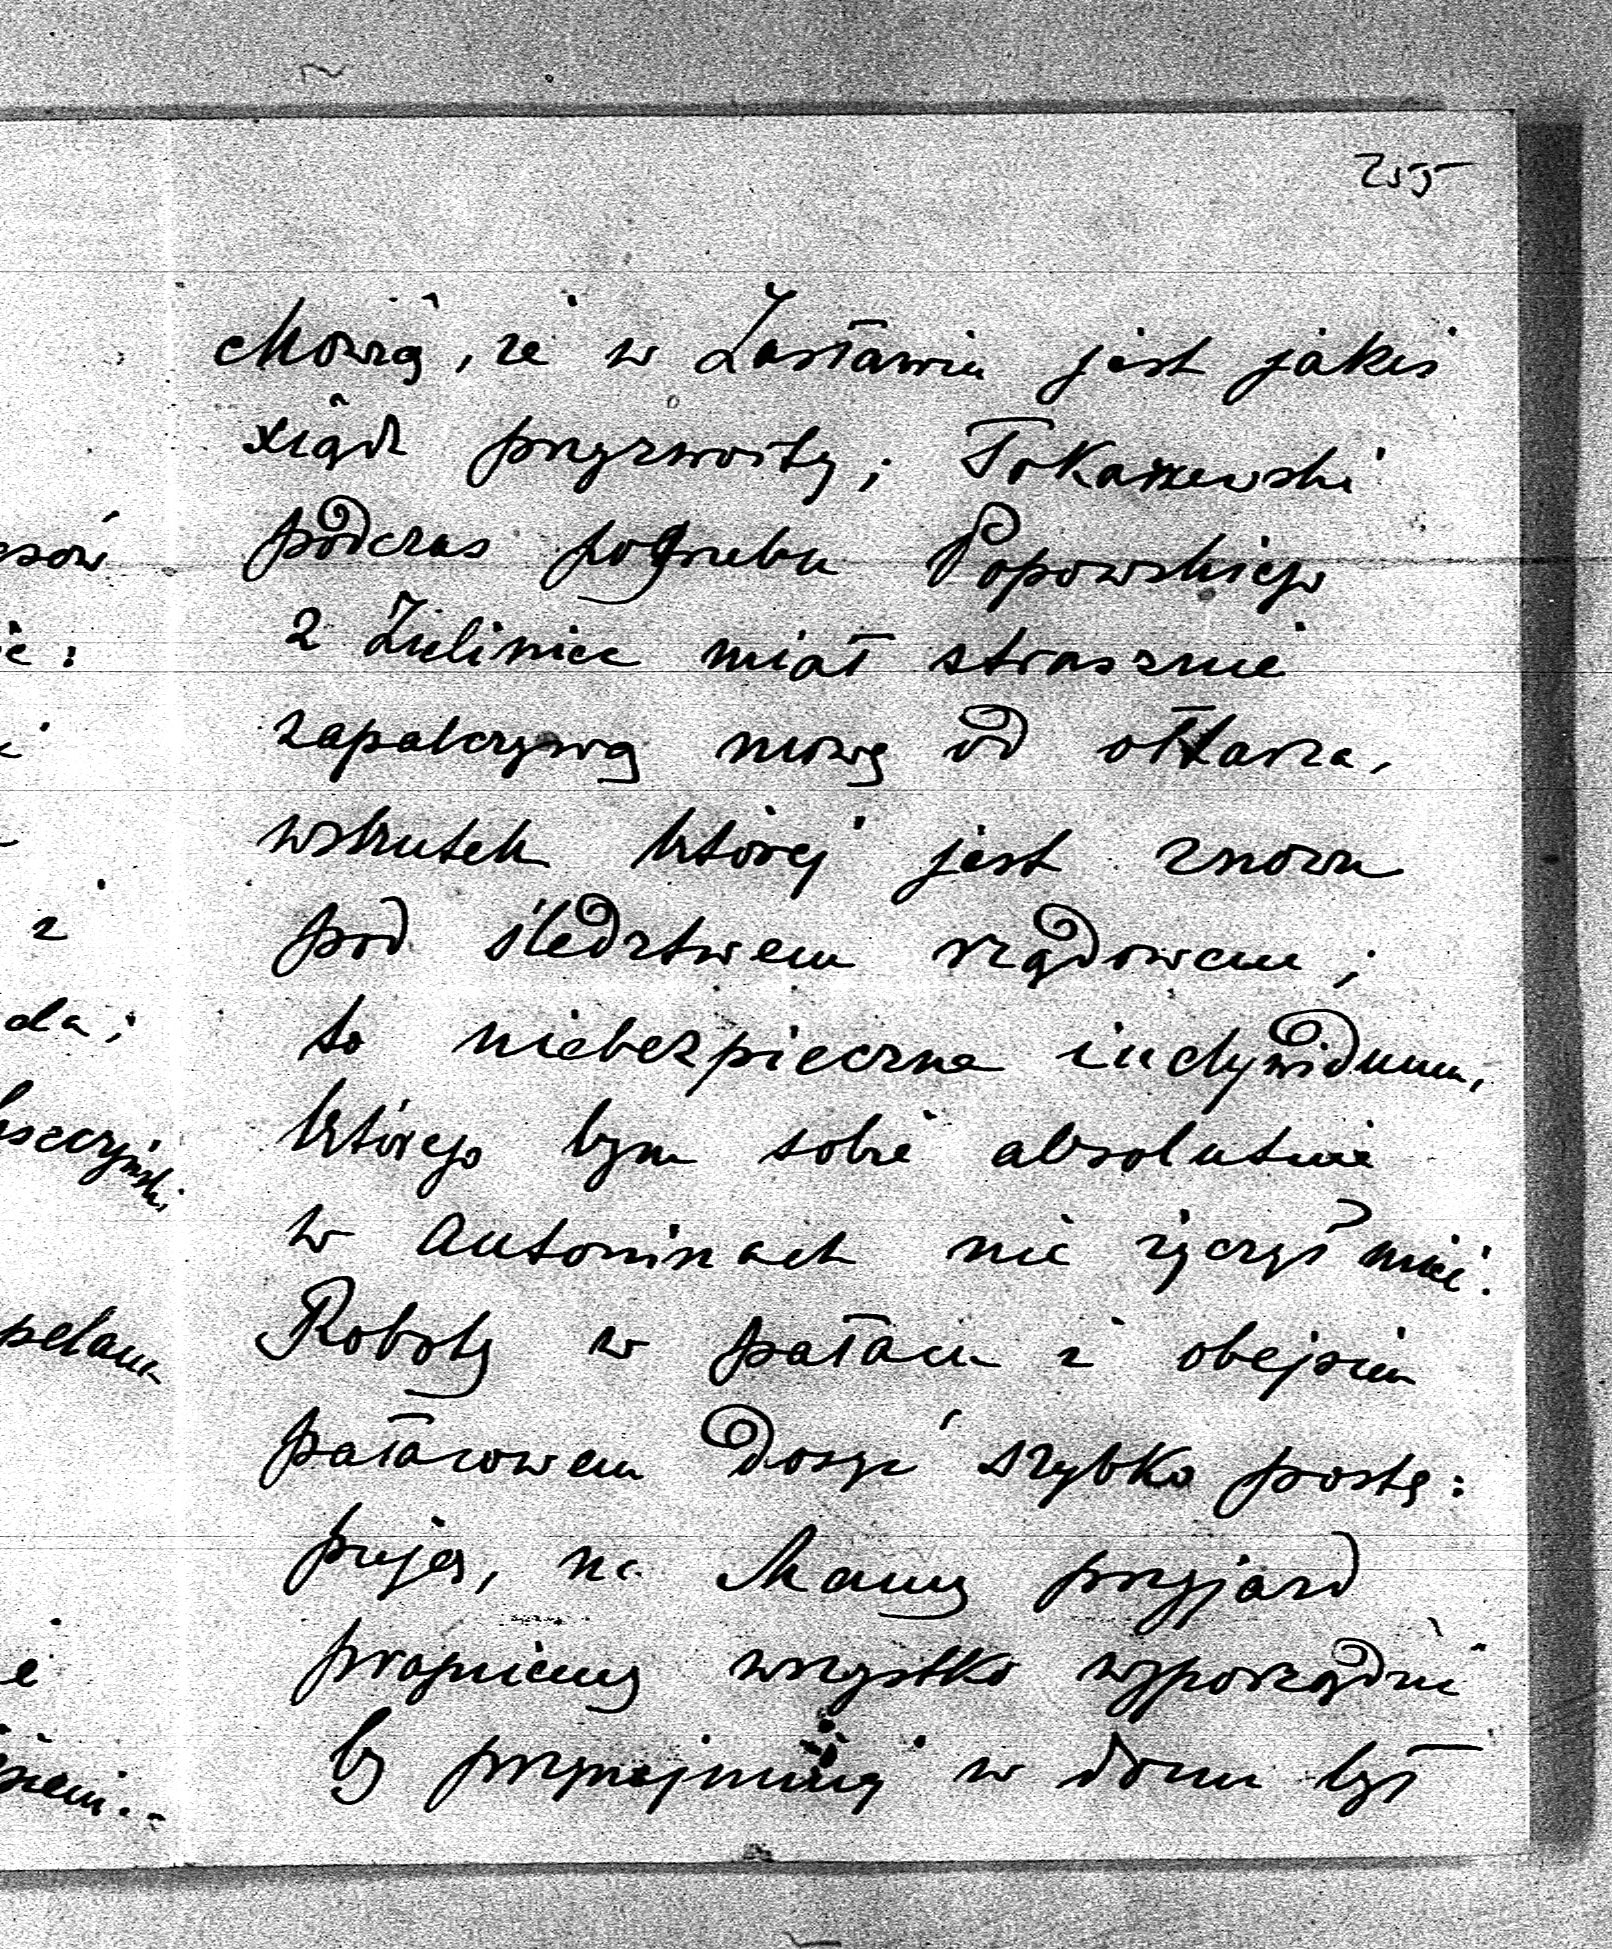 255
Mówią, że w Zasławiu jest jakiś
xiądz przyzwoity; Tokarzewski
podczas pogrzebu Popowskiego
z Zieliniec miał strasznie
zapalczywą mowę od ołtarza,
wskutek której jest znowu
pod śledztwem rządowem;
to niebezpieczne indywiduum,
którego bym sobie absolutnie
w Antoninach nie życzył mieć.
Roboty w pałacu i obejściu
pałacowem dosyć szybko postę:
pują, na Mamy przyjazd
pragniemy wszystko wyporządzić
by przynajmniej w domu był
esów
ie:
i
da;
pelanu